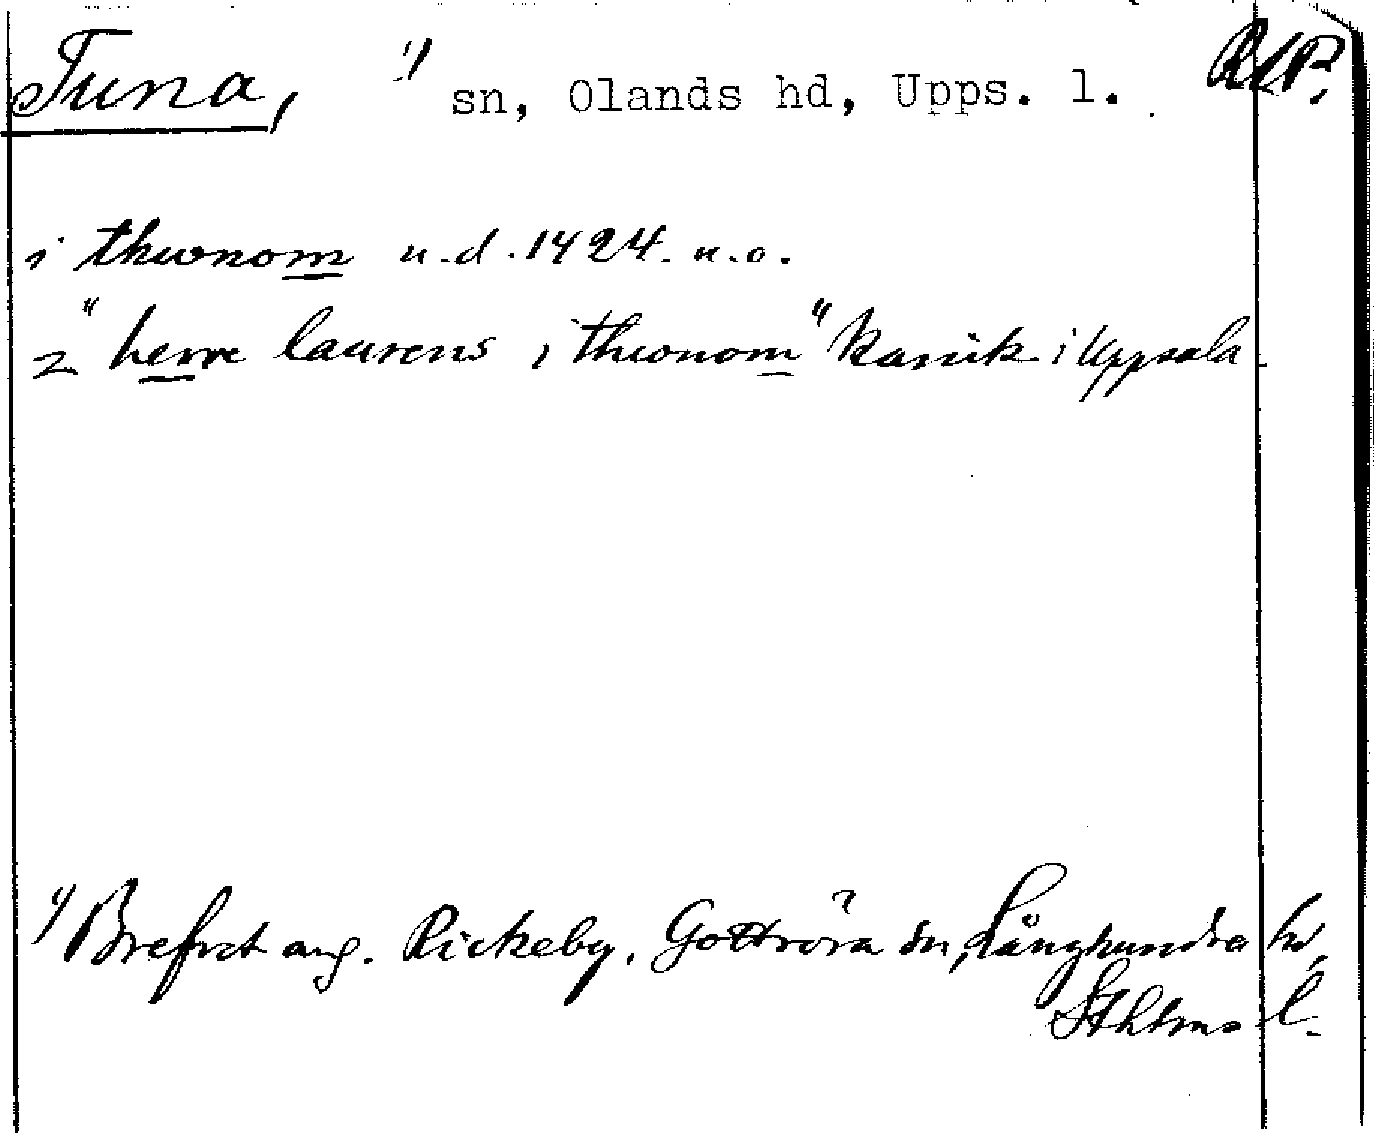 Tuna, 1) sn, Olands hd, Upps. l. RAP.
i thwnom u.d. 1424. u.o.
2 "herre laurens i thwnom" kanik i Uppsala
1) Brefvet ang. Rickeby, Gottröra sn, Långhundra hd,
Sthlms l.